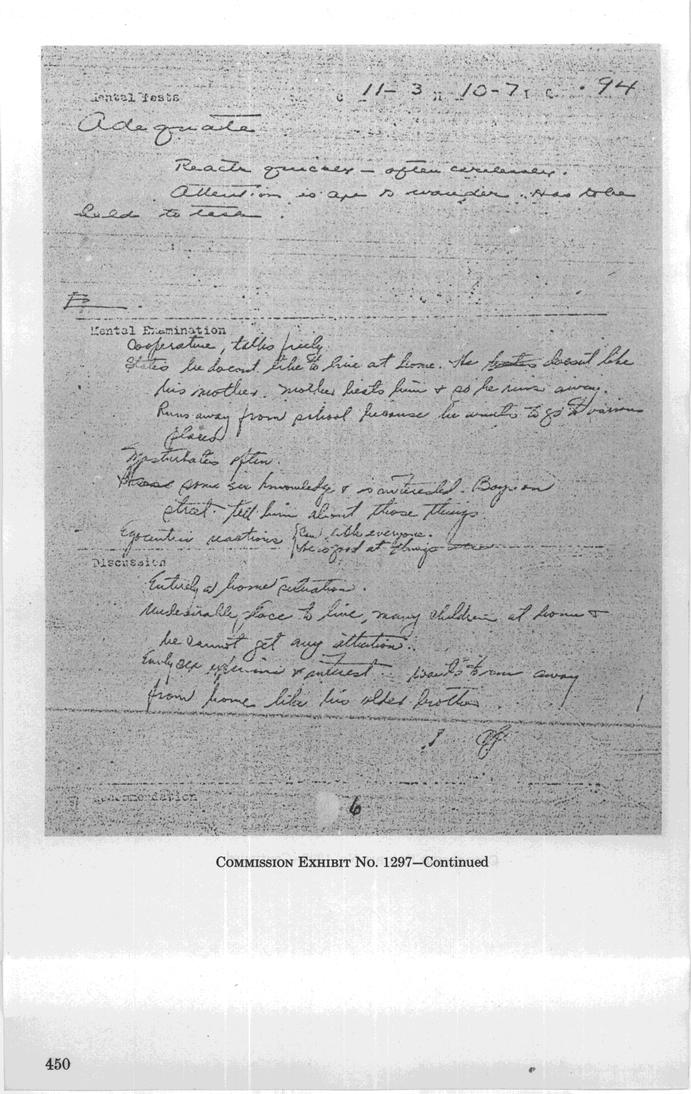 Mental Tests C 11-3 M 10-7 I Q .94
Adequate
Reacts quickly - often carelessly.
Attention is apt to wander. Has to be
held to task.
Mental Examination
Cooperative, talks freely
States he doesnt like to live at home. He doesnt like
his mother. Mother beats him & so he runs away.
Runs away from school because he wants to go to various
places
Masturbates often.
some sex knowledge & is interested. Boys on
street tell him about those things
Egocentric reactions with everyone.
he is good at things
Discussion
Entirely a home situation.
Undesirable place to live, many children at home &
he cannot get any attention.
Early sex & interest wants to run away
from home like his older brother.
Recommendation
6
COMMISSION EXHIBIT NO. 1297—Continued
450